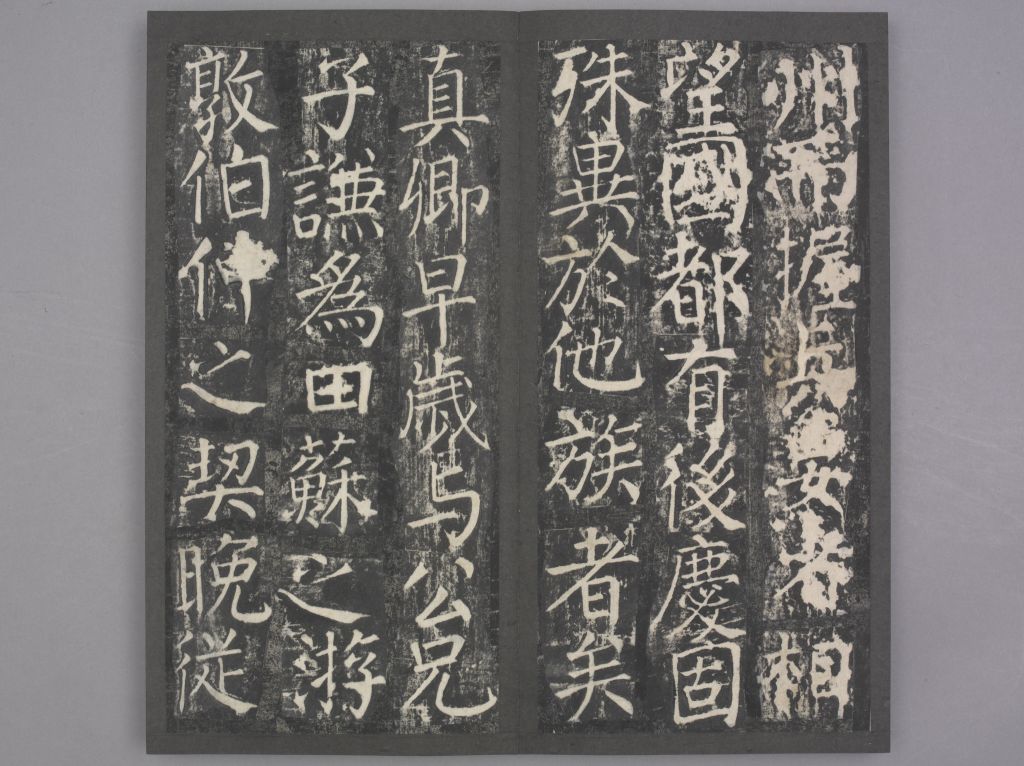 州而握兵要者相
望國都有後慶固
殊異於他族者矣
真卿早歲与公兄
子謙為田蘇之游
敦伯仲之契晚従